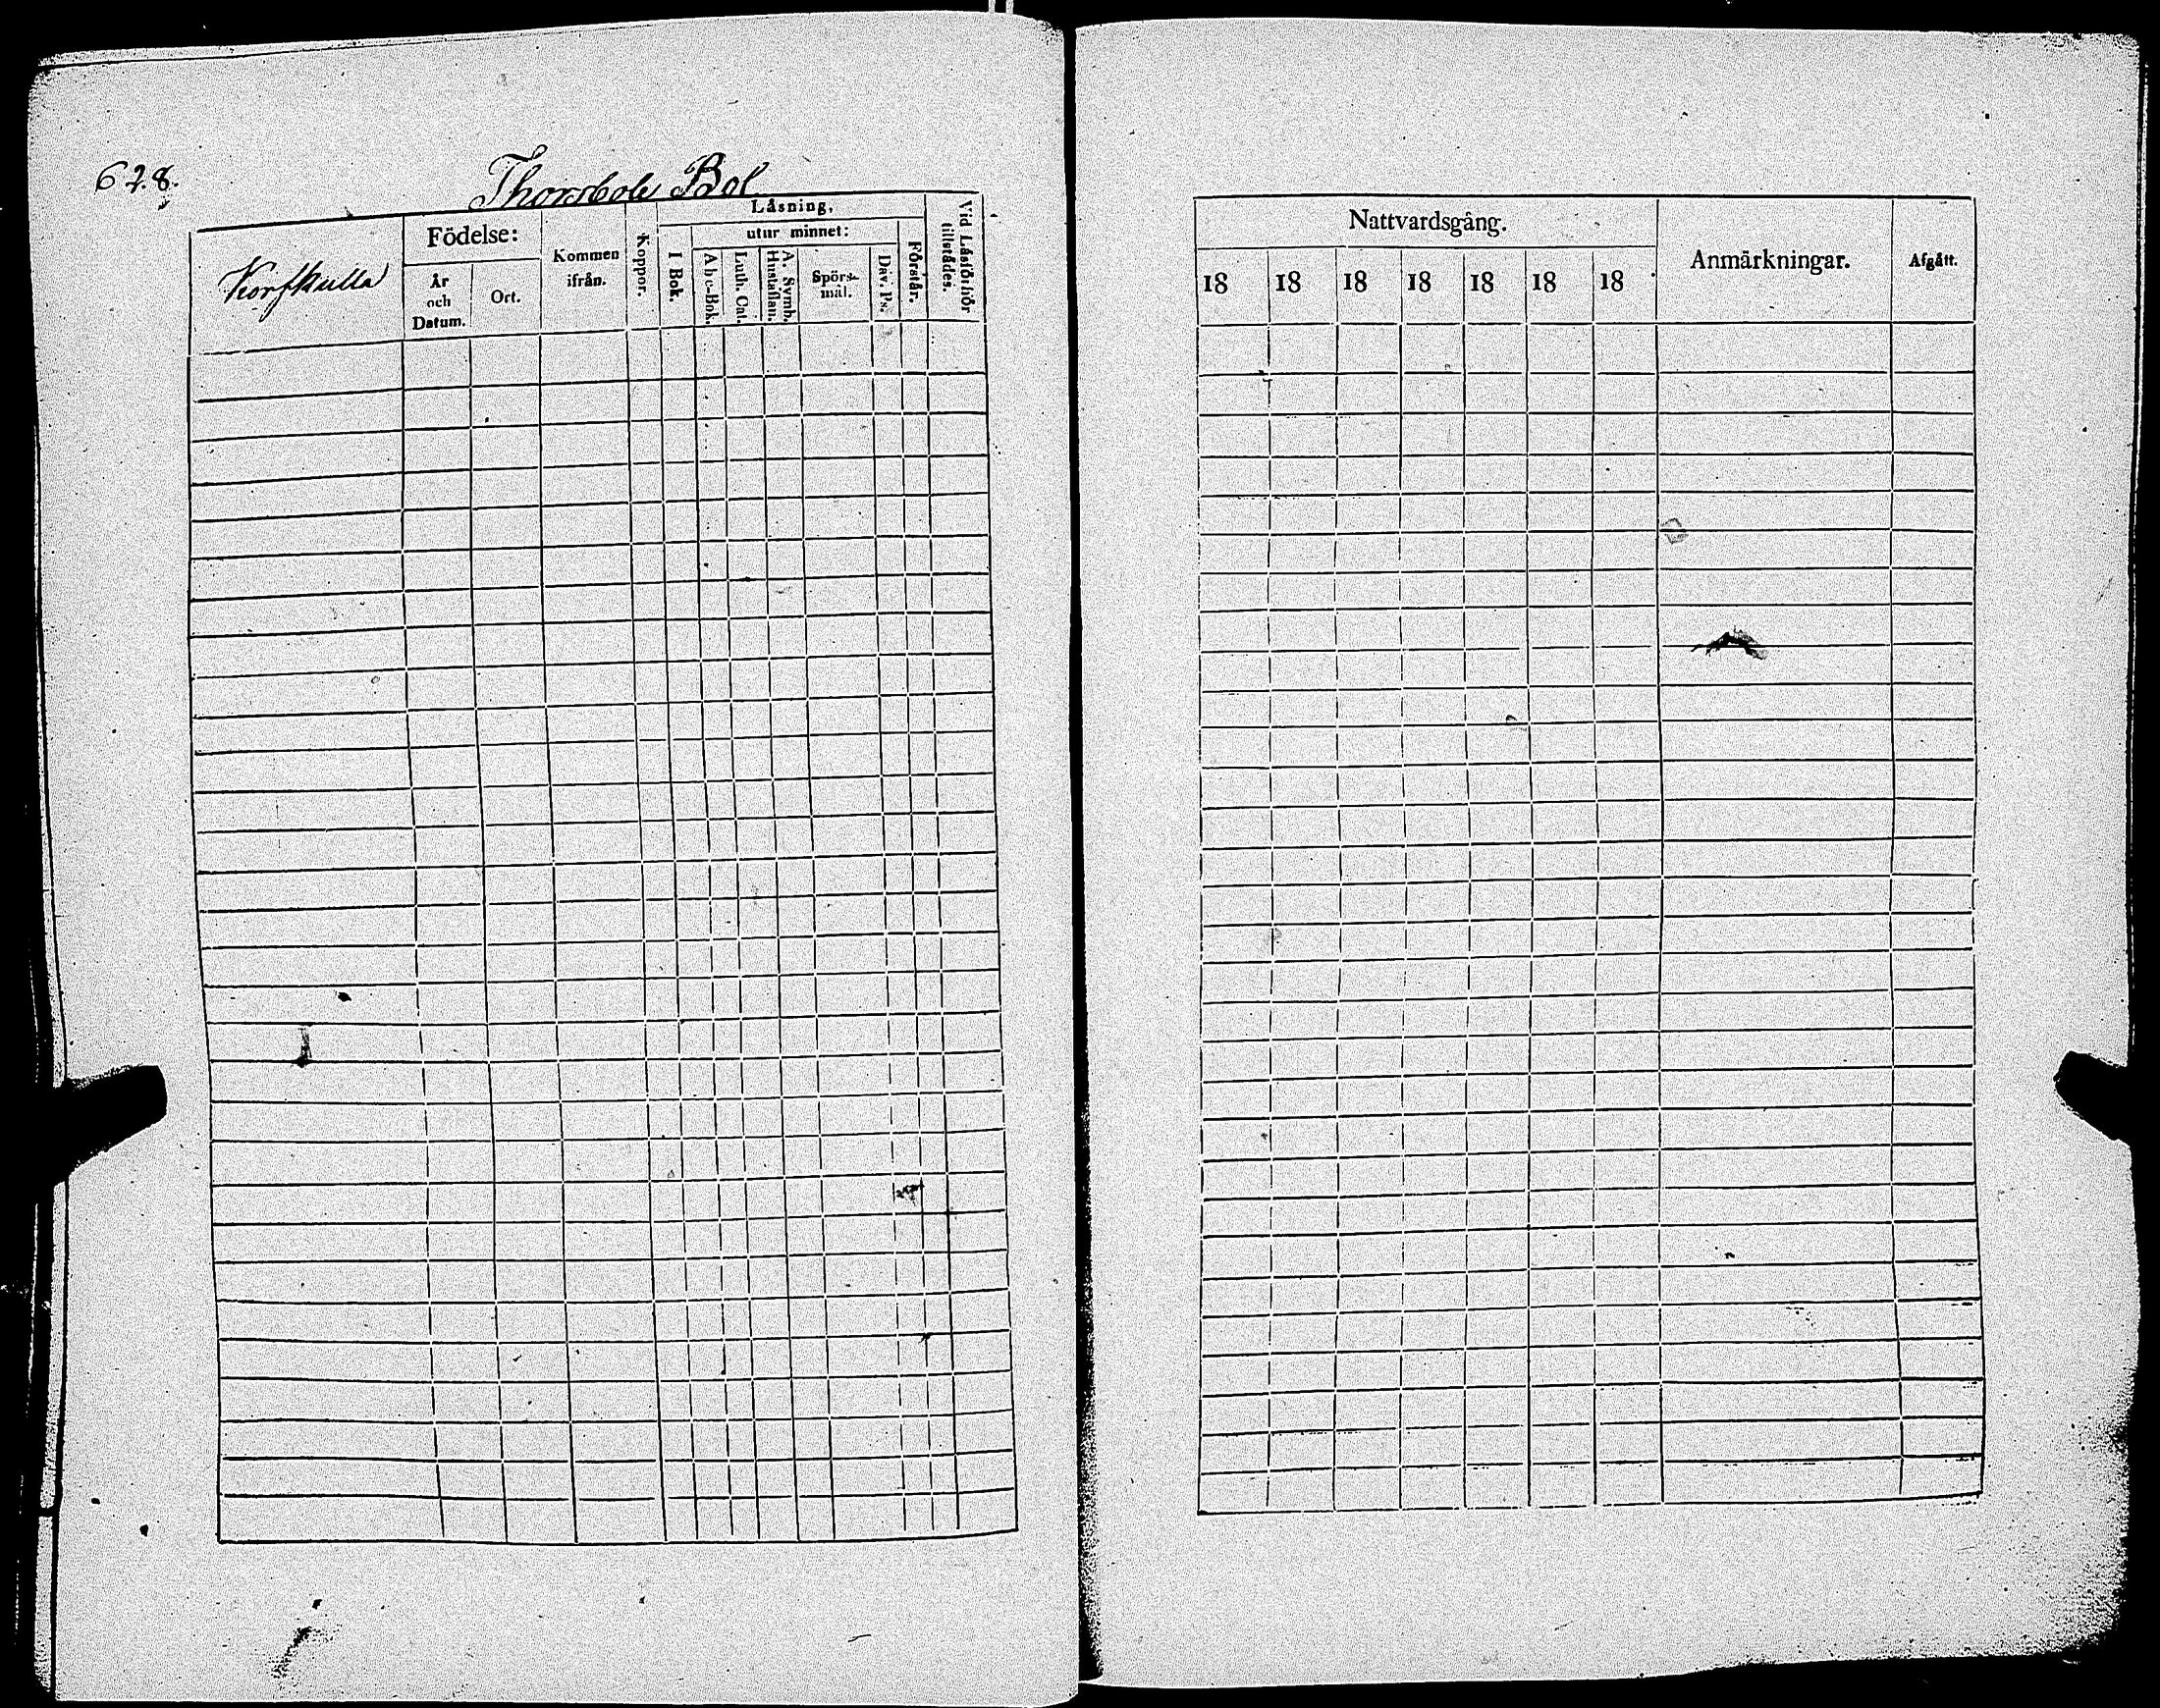 628.
Thorsbole Bol
Korfkulla
Födelse:
År
och
Datum.
Ort.
Kommen
ifrån.
Koppor.
Läsning,
I Bok.
utur minnet:
Abc-Bok.
Luth. Cat.
A. Symb.
Hustaflan.
Spörs-
mål.
Dav. Ps.
Förstår.
Vid Läsförhör
tillstädes.
Nattvardsgång.
18 18 18 18 18 18 18
Anmärkningar.
Afgått.